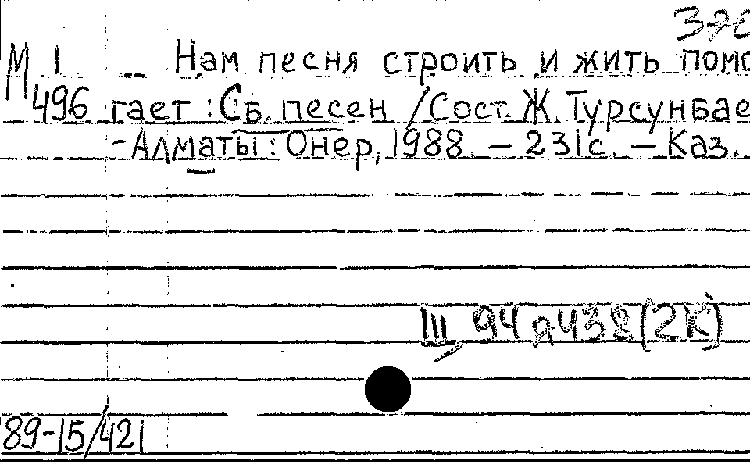 М 1 Нам песня строить и жить помо
496 гает : Сб. песен / Сост. Ж. Турсунбае
- Алматы : Онер, 1988. – 231с. – Каз.
Щ 94 я 438 (2К)
89-15/421